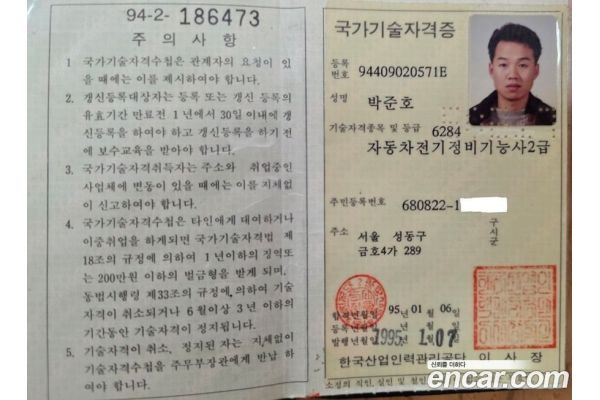 94-2- 186473
주 의 사 항
1 국가기술자격수첩은 관계자의 요청이 있
을 때에는 이를 제시하여야 합니다.
2. 갱신등록대상자는 등록 또는 갱신 등록의
유효기간 만료전 1년에서 30일 이내에 갱
신등록을 하여야 하고 갱신등록을 하기 전
에 보수교육을 받아야 합니다.
3. 국가기술자격취득자는 주소와 취업중인
사업체에 변동이 있을 때에는 이를 지체없
이 신고하여야 합니다.
4 국가기술자격수첩은 타인에게 대여하거나
이중취업을 하게되면 국가기술자격법 제
18조의 규정에 의하여 1년이하의 징역또
는 200만원 이하의 벌금형을 받게 되며,
동법시행령 제33조의 규정에 의하여 기술
자격이 취소되거나 6월이상 3년 이하의
기간동안 기술자격이 정지됩니다.
5. 기술자격이 취소, 정지된 자는 지체없이
기술자격수첩을 주무부장관에게 반납 하
여야 합니다.
국가기술자격증
등록
번호 94409020571E
성명 박준호
기술자격종목 및 등급 6284
자동차전기정비기능사2급
주민등록번호 680822-1
주소 서울 성동구
구시군
금호4가 289
합격년월일 95년 01월 06일
등록년월일
발행년월일 1995년 1.07일
한국산업인력관리공단 이 사 장
신뢰를 더하다
소정의 직인, 실인 및 철인
encar.com